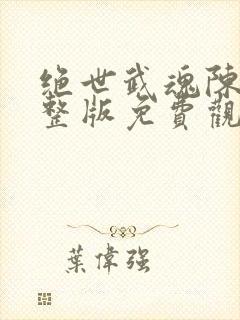 绝世武魂陈
整版免費觀
葉偉强